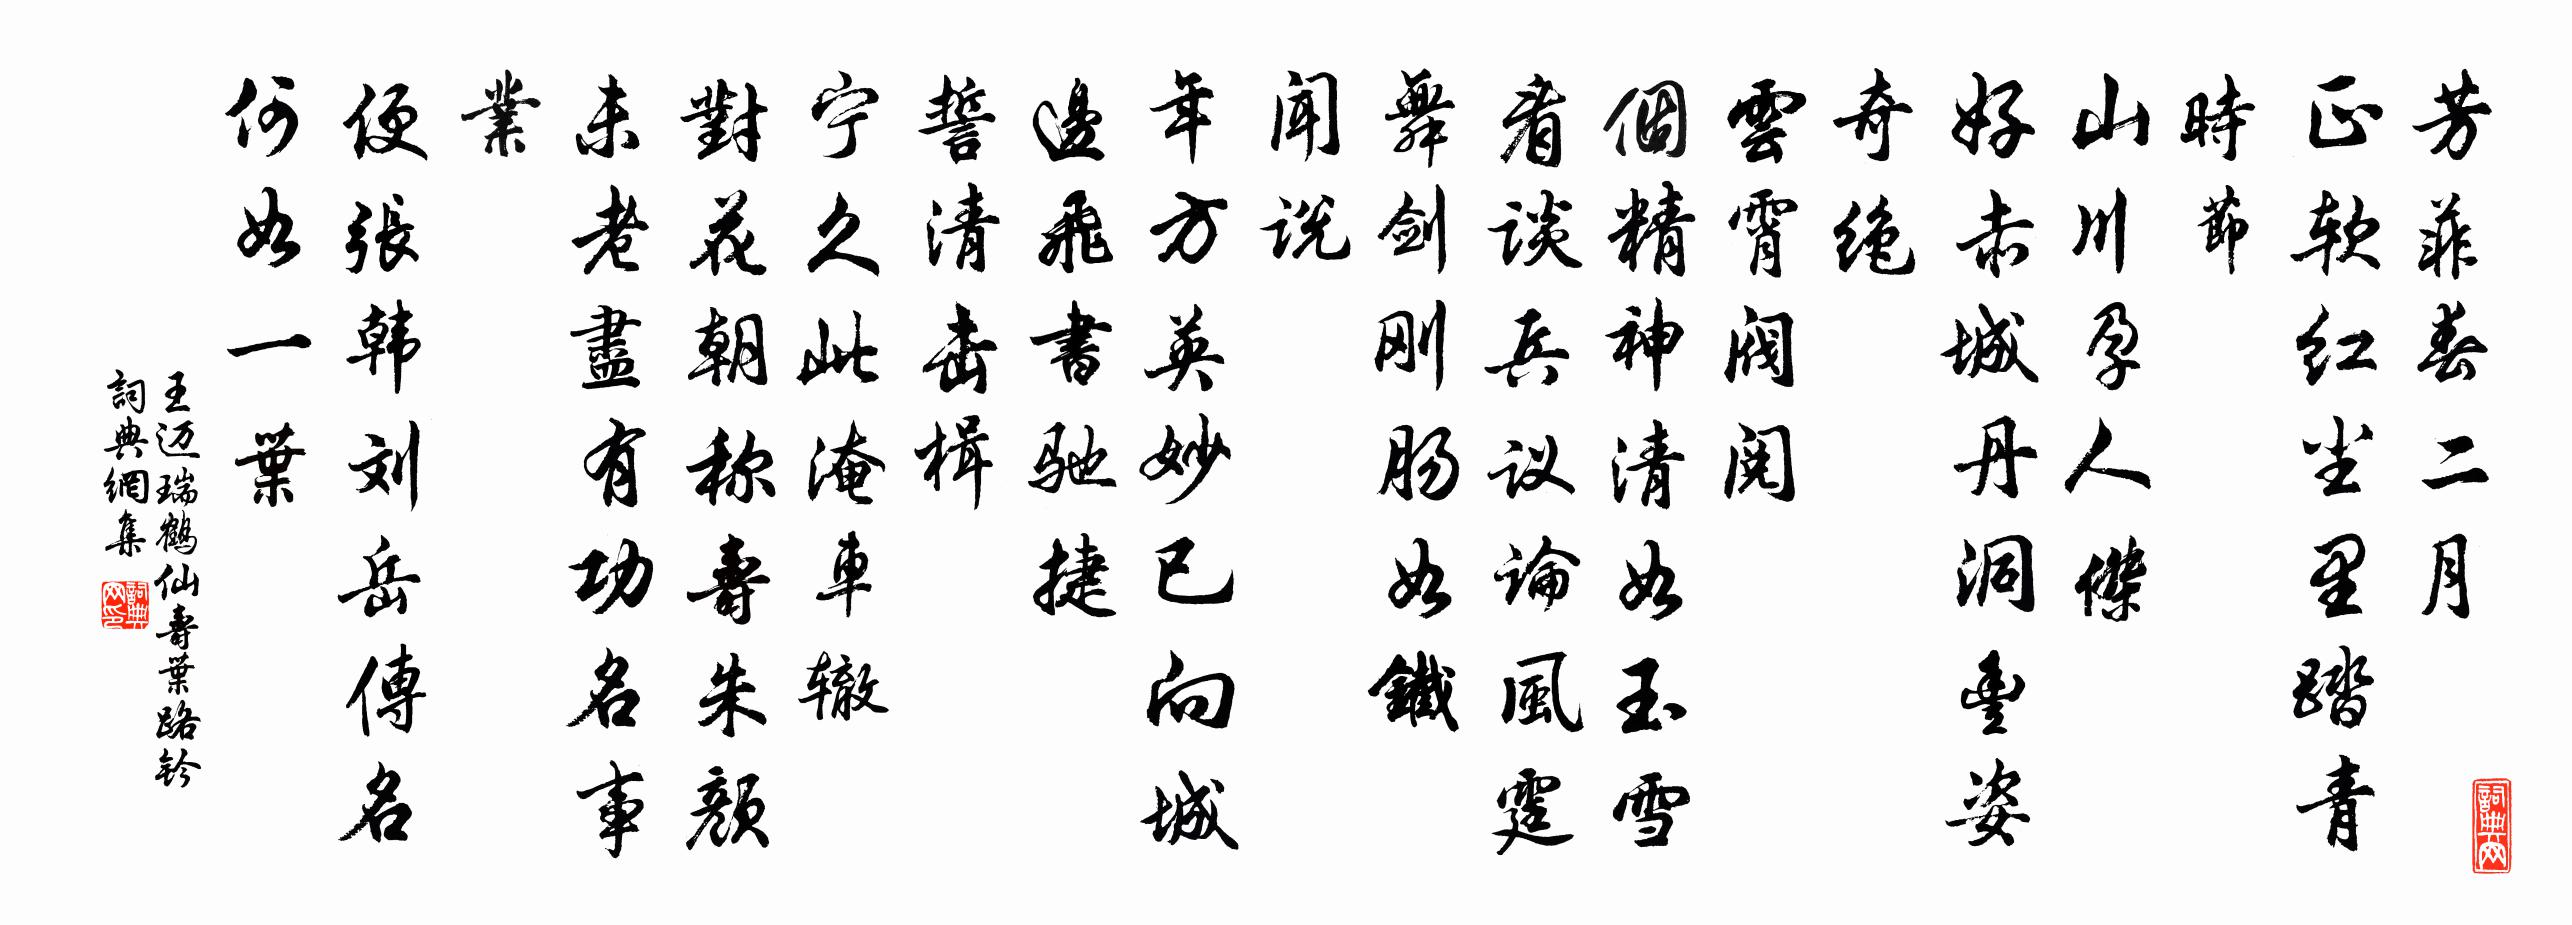 芳菲春二月
正软红尘里踏青
時節
山川孕人傑
好赤城丹洞豊姿
奇绝
雲霄閥閱
個精神清如玉雪
看談兵议論風霆
舞剑刚肠如鐵
闻説
年方英妙已向城
邊飛書驰捷
誓清击楫
宁久此淹車辙
對花朝称壽朱颜
未老盡有功名事
業
便張韩刘岳傳名
何如一葉
王迈瑞鶴仙壽葉路钤
詞典網集
詞典网印
詞典网